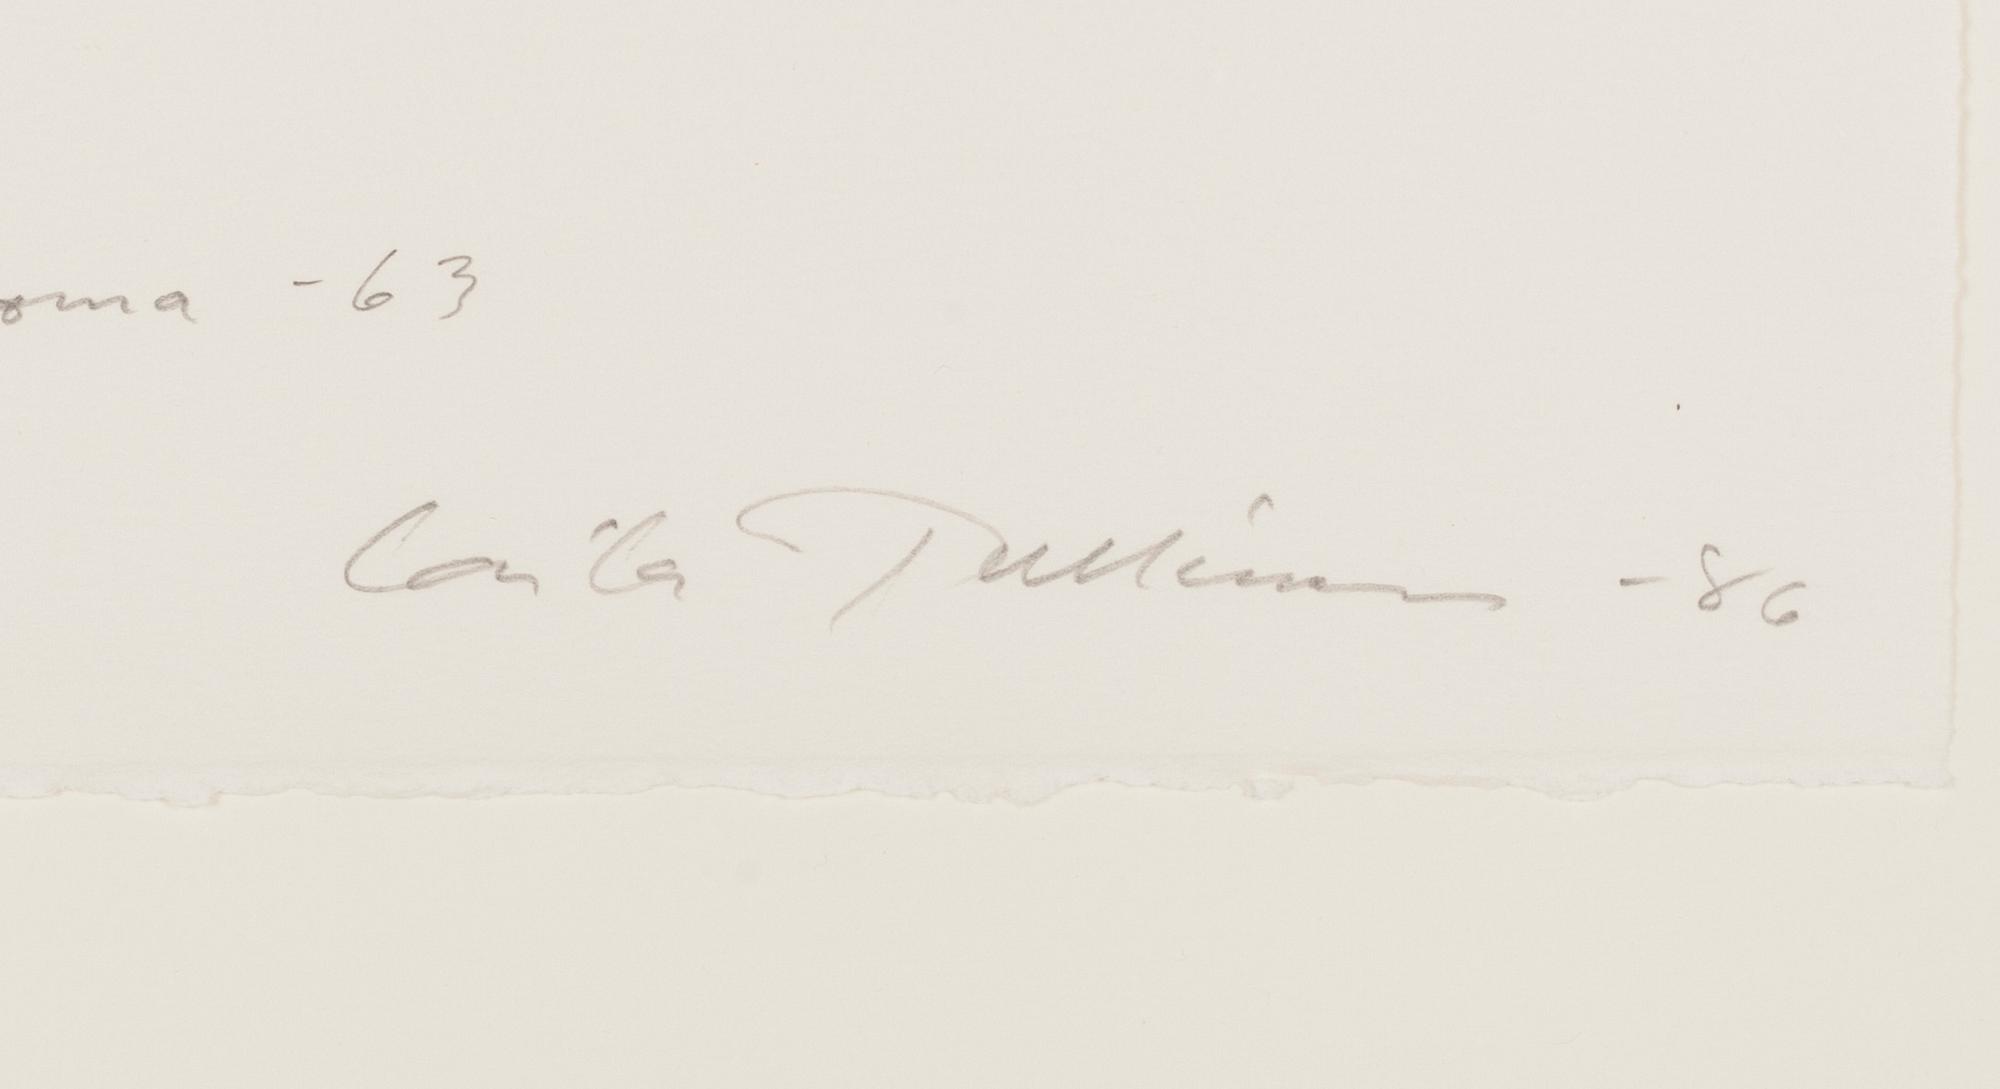 oma -63
Laila Pullinen -86